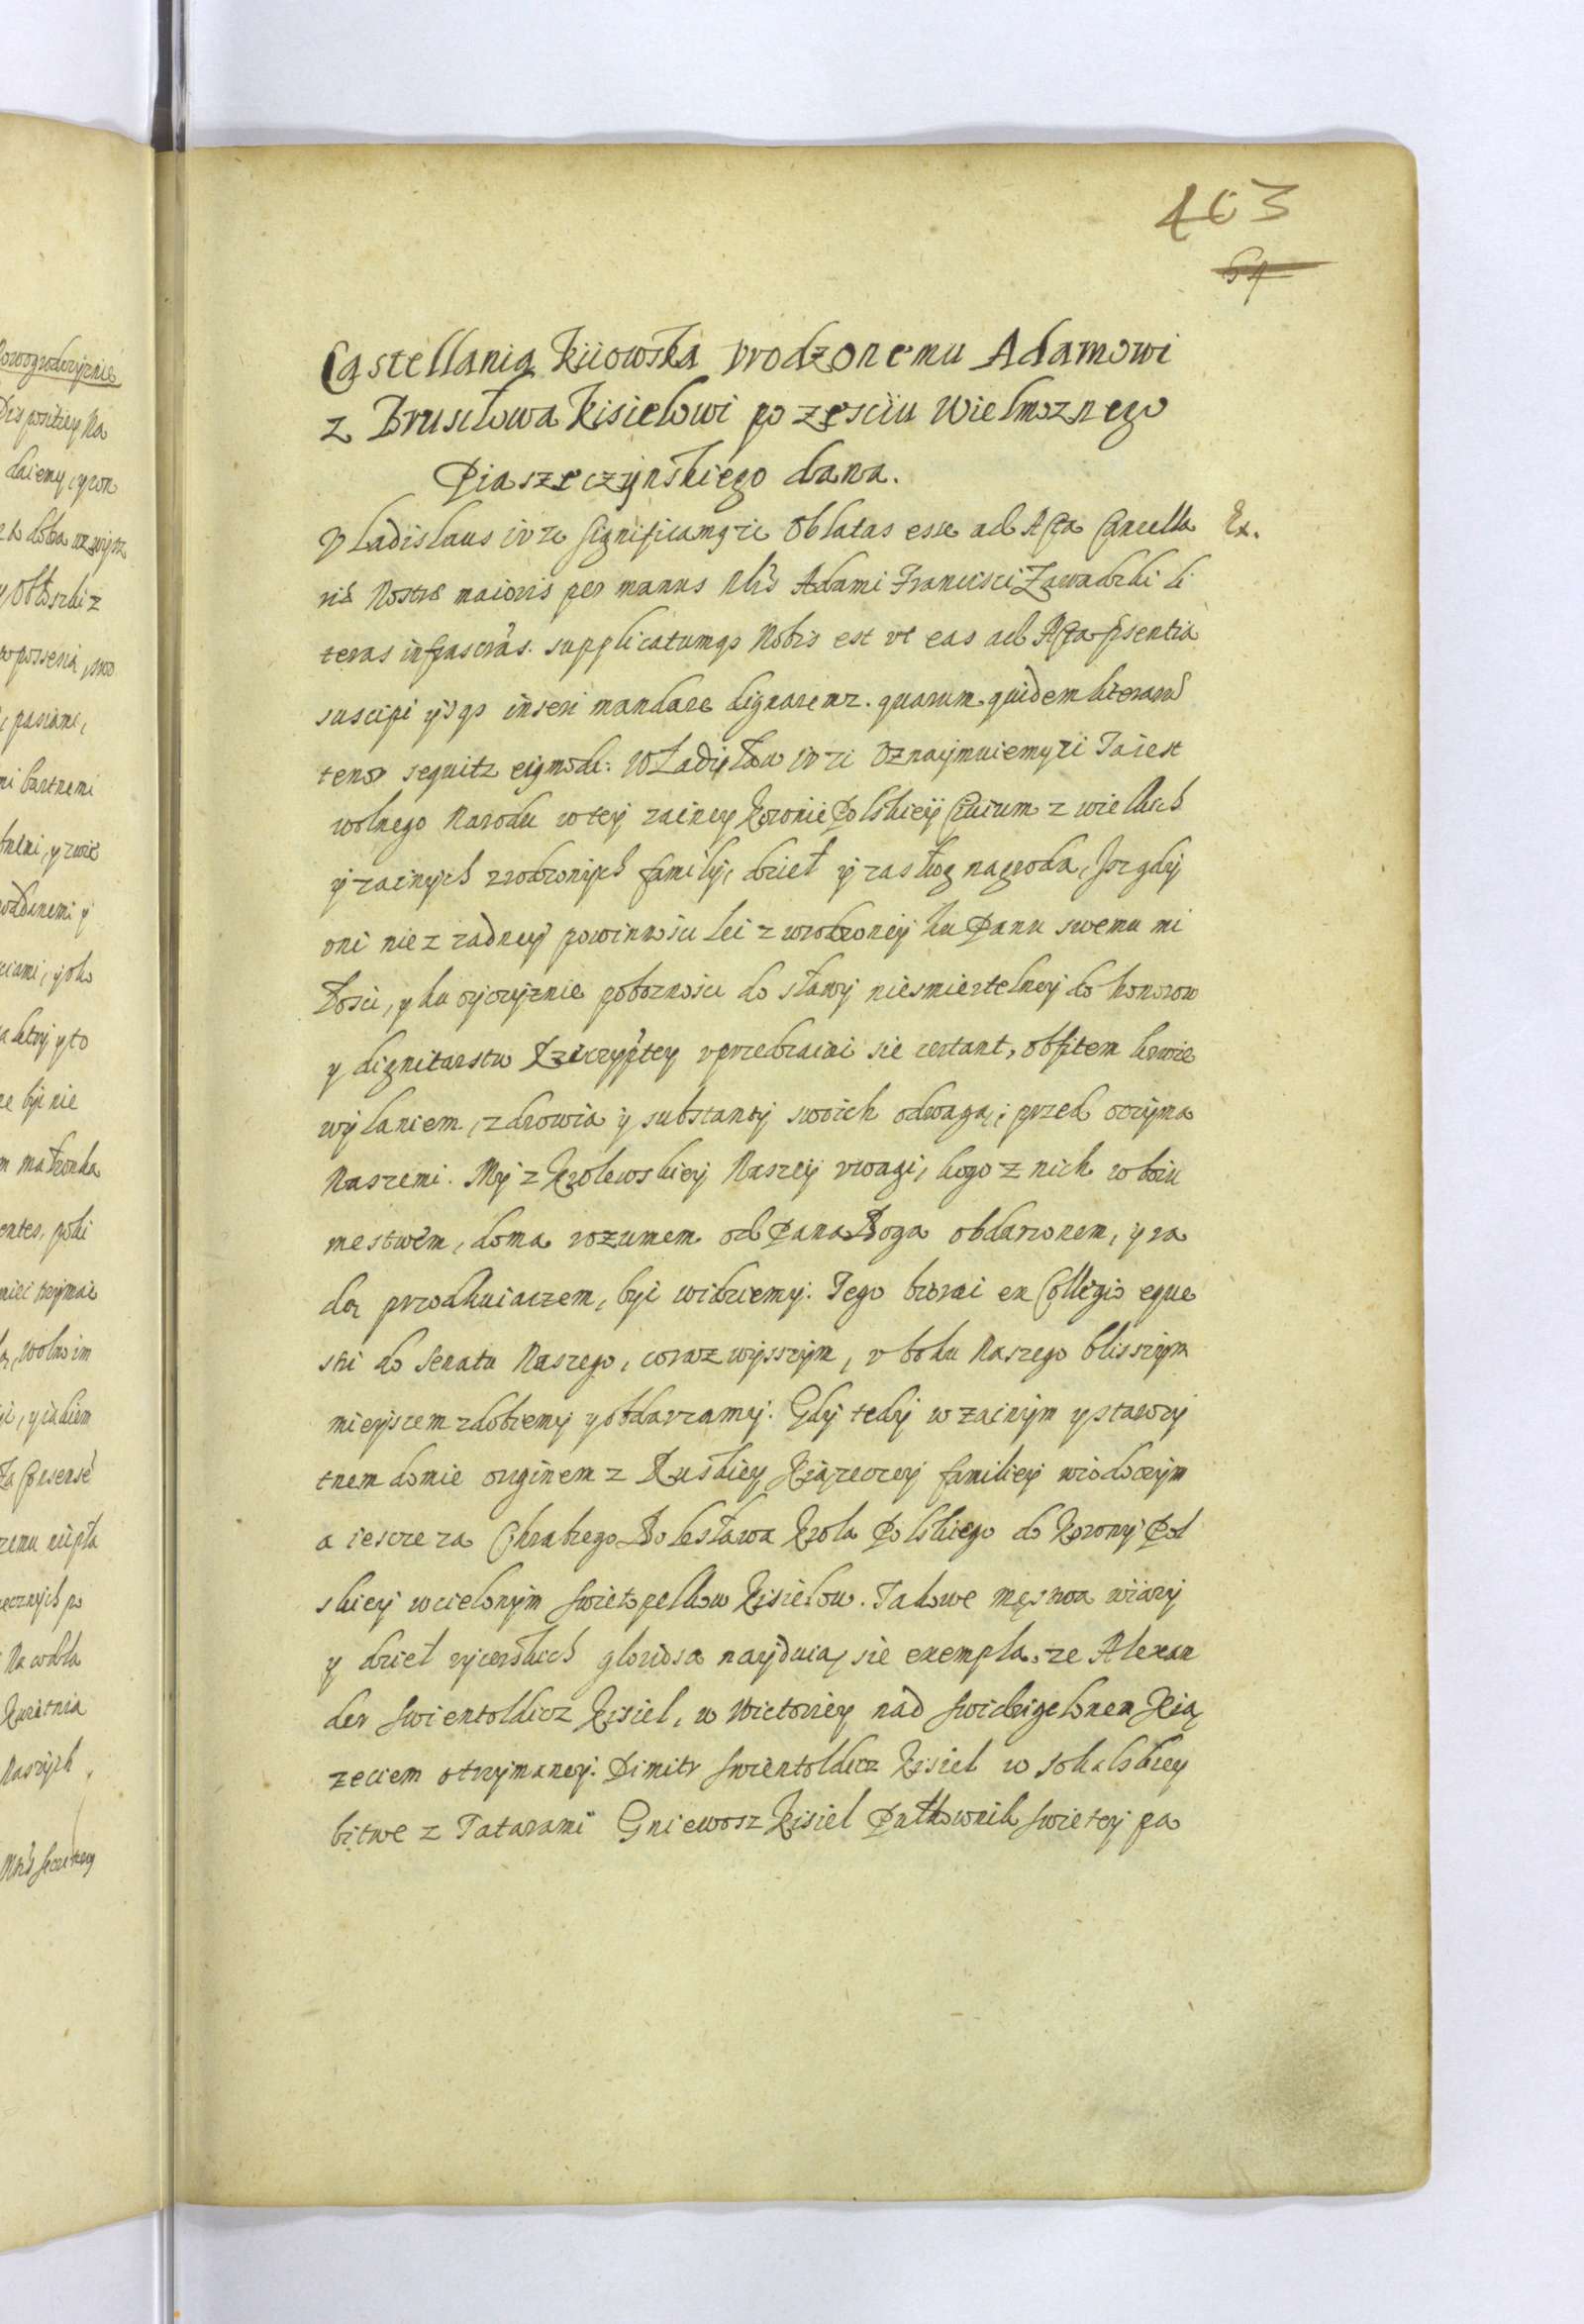 463
64
Castellania Kiiowska vrodzonemu Adamowi
z Brusilowa Kisielowi po zesciu Wielmoznego
Piaszeczynskiego dana.
Vladislaus IV zc Significamq zc Oblatas esse ad Acta Cancella Ex.
riæ Nostræ maioris per manus Adami Francisci Zawadzki li
teras infrascras. supplicatumqs Nobis est vt eas ad Acta psentia
suscipi ysqs inseri mandare dignaremr. quarum quidem literarum
tenor sequitr eiqmodi: Wladysław IV zc Oznaymuiemy zc Ta iest
wolnego Narodu w tey zacney Koronie Polskiey Ciuium z wielkich
y zacnych vrodzonych familij, dzieł y zasług nagroda, Isz gdy
oni nie z zadney powinnosci lecz wrodzoney ku Panu swemu mi
łosci, y ku oyczyznie poboznosci do sławy niesmiertelney do honorow
y dignitarstw Rzeczyptey vprzedzaiąc sie certant, obfitem krwie
wylaniem, zdrowia y substancy swoich odwagą, przed oczyma
Naszemi. My z Krolewskiey Naszey vwagi, kogo z nich w boiu
mestwem, doma rozumem od Pana Boga obdarzonem, y ra
dą przodkuiaczem, byc widziemy. Tego bioroac ex Collegio eque
stri do Senatu Naszego, coraz wyzszym, v boku Naszego blisszym
mieyscem zdobiemy y obdarzamy. Gdy tedy w zacnym y starozy
tnem domie originem z Ruskiey Kiązeczey familiey wiodoczym
a iescze za Chrabrego Bolesława Krola Polskiego do Korony Pol
skiey wcielonym Swiętopelkow Kisielow. Takowe męstwa wiary
y dzieł rycerskich gloriosa nayduią sie exempla, ze Alexan
der Swientoldicz Kisiel, w Wictoriey nad Swidrigelonem Xią
zeciem otrzymaney. Dimitr Swientoldicz Kisiel w Sokalskiey
bitwe z Tatarami Gniewosz Kisiel Pułkownik Swietey pa